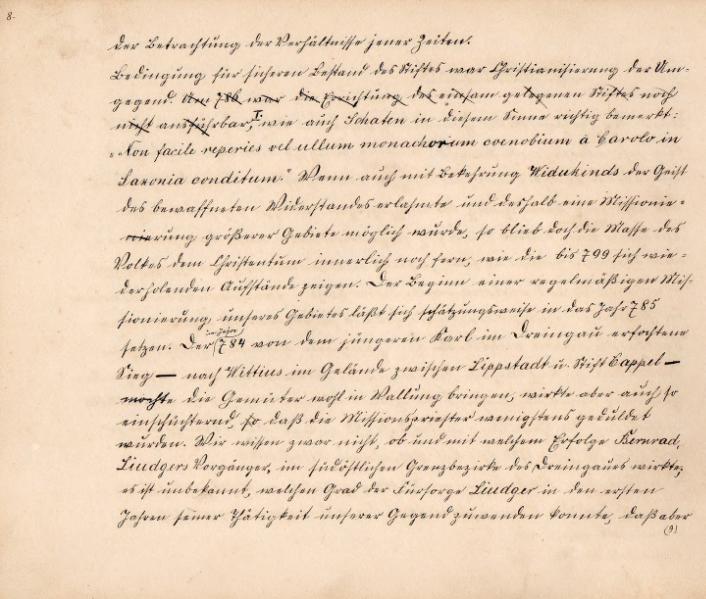 8.
der Betrachtung der Verhältnisse jener Zeiten.
Bedingung für sicheren Bestand des Stiftes war Christianisierung der Um-
gegend. Um 786 war die Errichtung des einsam gelegenen Stiftes noch
nicht ausführbar, I. wie auch Schaten in diesem Sinne richtig bemerkt:
„Non facile reperies vel ullum monachorum coenobium à Carolo in
Saxonia conditum.“ Wenn auch mit Bekehrung Widukinds der Geist
des bewaffneten Widerstandes erlahmte und deshalb eine Missionie-
rierung größerer Gebiete möglich wurde, so blieb doch die Masse des
Volkes dem Christentum innerlich noch fern, wie die bis 799 sich wie-
derholenden Aufstände zeigen. Der Beginn einer regelmäßigen Mis-
sionierung unseres Gebietes läßt sich schätzungsweise in das Jahr 785
setzen. Der (im Jahre) 784 von dem jüngeren Karl im Dreingau erfochtene
Sieg — nach Wittius im Gelände zwischen Lippstadt u. Stift Cappel —
mochte die Gemüter wohl in Wallung bringen, wirkte aber auch so
einschüchternd, so daß die Missionspriester wenigstens geduldet
wurden. Wir wissen zwar nicht, ob und mit welchem Erfolge Bernrad,
Liudgers Vorgänger, im südöstlichen Grenzbezirke des Dreingaues wirkte;
es ist unbekannt, welchen Grad der Fürsorge Liudger in den ersten
Jahren seiner Thätigkeit unserer Gegend zuwenden konnte, daß aber
(9)